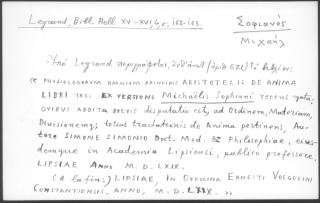 Legrand, Bibl. Hell. XV-XVI, 4, σ. 162-163.
Σοφιανός
Μιχαήλ
Ὑπὸ Legrand περιγράφεται, (ἀριθ. 571) τὸ ἑξῆς:
« PHYSIOLOGORUM OMNIUM PRINCIPIS ARISTOTELIS DE ANIMA
LIBRI TRES: EX VERSIONE Michaëlis Sophiani recens nata.
QUIBUS ADDITA BREVIS disputatio est, ad Ordinem, Materiam,
Divisionemq; totius tractationis de Anima pertinens, Au-
tore SIMONE SIMONIO Doct. Med. & Philosophiae, eius-
demque in Academia Lipsiensi, publico professore.
LIPSIAE ANNO M. D. LXIX.
(A la fin:) LIPSIAE, IN OFFICINA ERNESTI VOEGELINI
CONSTANTIENSIS. ANNO, M. D. LXIX. »